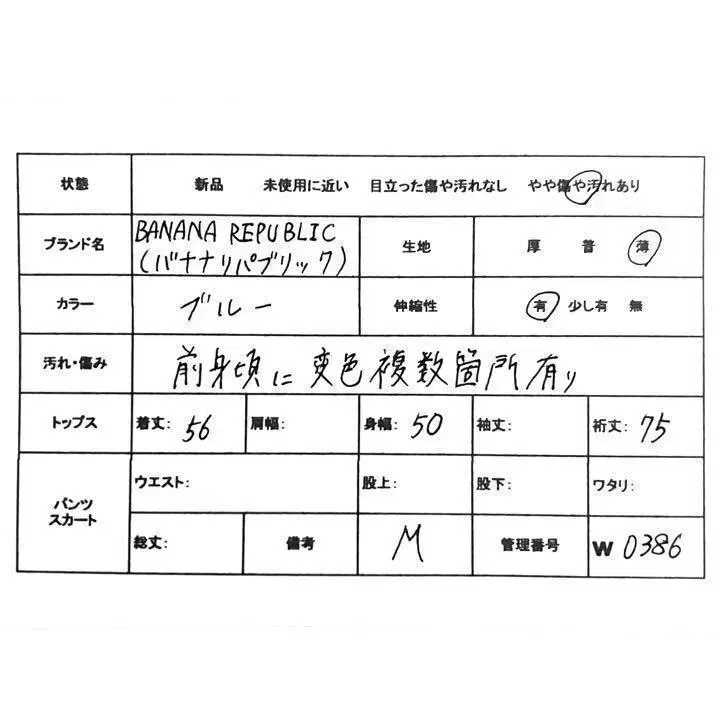 状態 新品 未使用に近い 目立った傷や汚れなし やや傷や汚れあり
ブランド名 BANANA REPUBLIC 生地 厚 普 薄
(バナナリパブリック)
カラー ブルー 伸縮性 有 少し有 無
汚れ・傷み 前身頃に変色複数箇所有り
トップス 着丈: 56 肩幅: 身幅: 50 袖丈: 裄丈: 75
パンツ ウエスト: 股上: 股下: ワタリ:
スカート
総丈: 備考 M 管理番号 W 0386